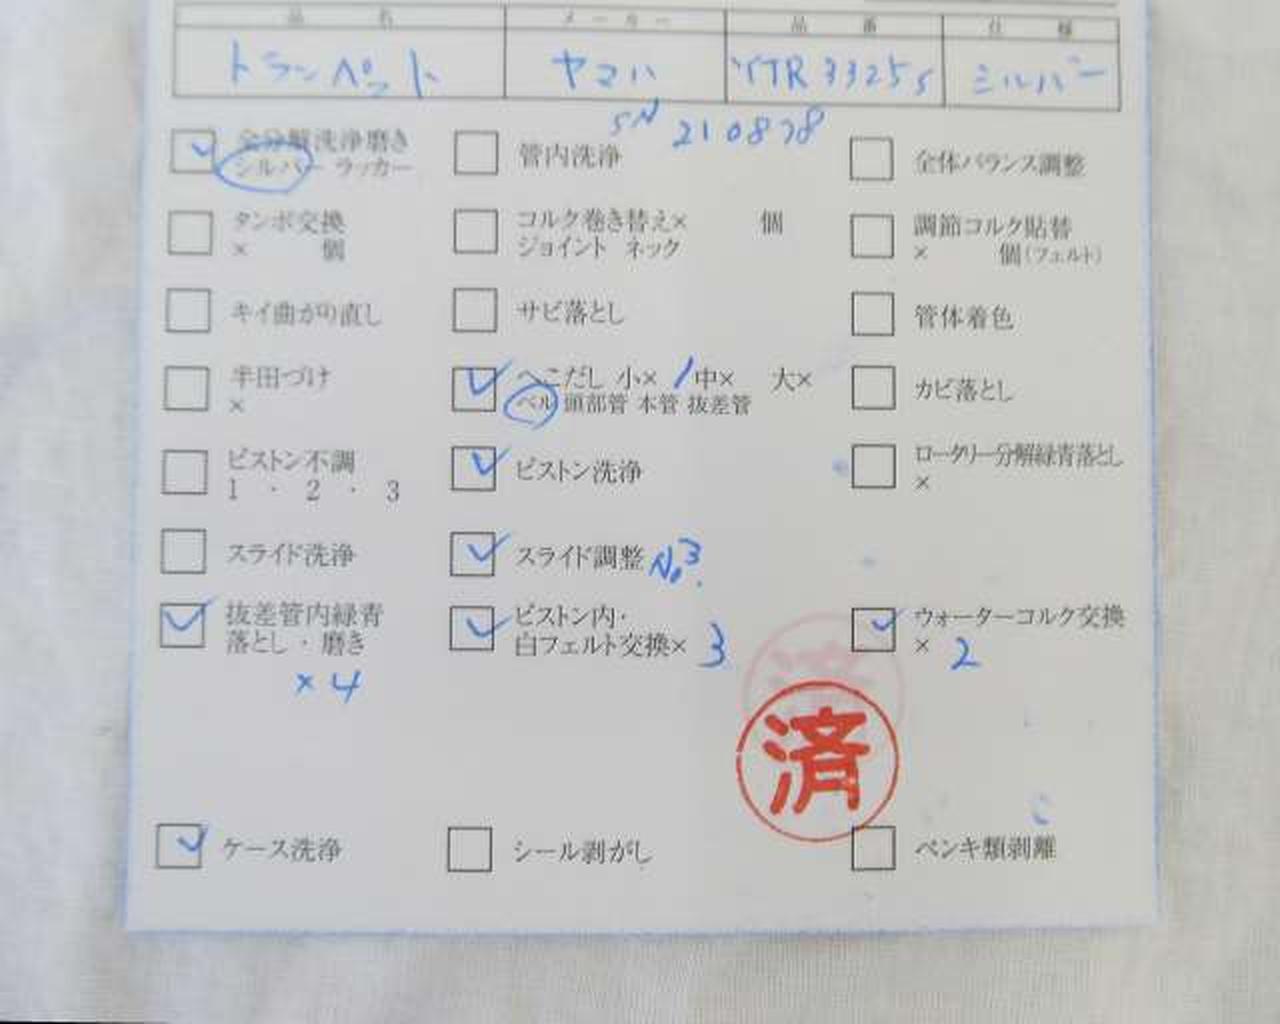 品 名 メーカー 品 番 仕 様
トランペット ヤマハ YTR 3325S シルバー
SN 210878
全分解洗浄磨き
シルバー ラッカー
管内洗浄
全体バランス調整
タンポ交換
× 個
コルク巻き替え× 個
ジョイント ネック
調節コルク貼替
× 個(フェルト)
キイ曲がり直し
サビ落とし
管体着色
半田づけ
×
へこだし 小× / 中× 大×
ベル 頭部管 本管 抜差管
カビ落とし
ピストン不調
1 ・ 2 ・ 3
ピストン洗浄
ロータリー分解緑青落とし
×
スライド洗浄
スライド調整 No3.
抜差管内緑青
落とし・磨き
× 4
ピストン内・
白フェルト交換× 3
ウォーターコルク交換
× 2
済
済
ケース洗浄
シール剥がし
ペンキ類剥離